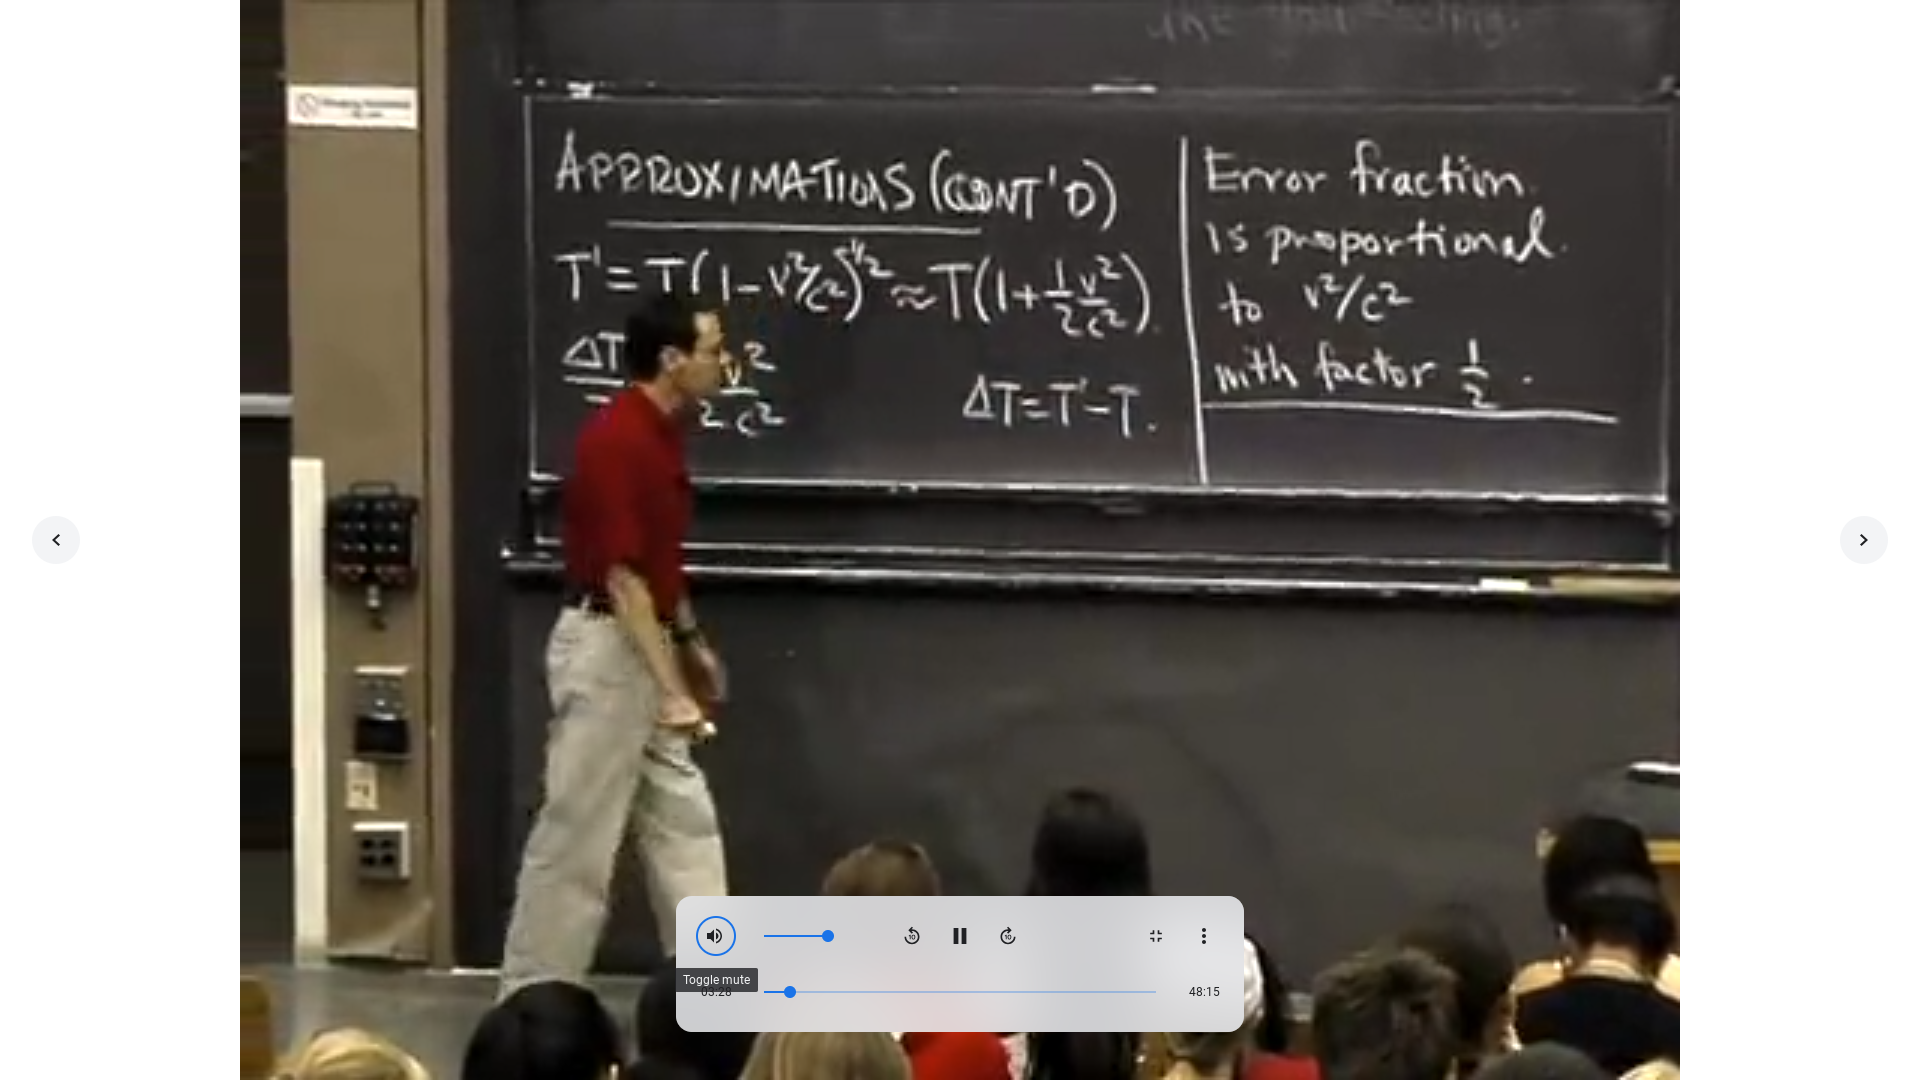 like you feeling.
APPROXIMATIONS (CONT'D)
T' = T(1-v²/c²)^-1/2 ≈ T(1+1/2 v²/c²).
ΔT v²
2 c²
ΔT=T'-T.
Error fraction
is proportional
to v²/c²
with factor 1/2.
Toggle mute
03:28
48:15